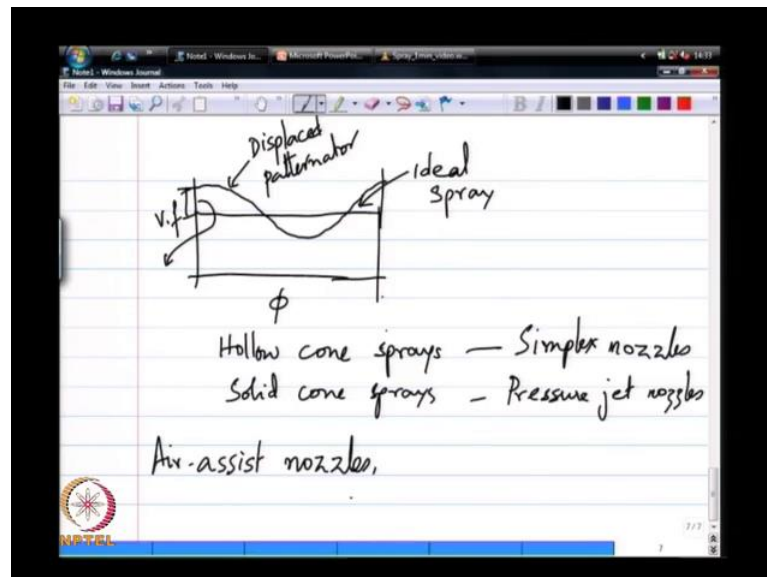 Note1 - Windows Jo...
Microsoft PowerPoi...
Spray_1min_video.w...
14:33
Note1 - Windows Journal
File Edit View Insert Actions Tools Help
B I
Displaced
patternator
ideal
spray
v.f
ϕ
Hollow cone sprays — Simplex nozzles
Solid cone sprays - Pressure jet nozzles
Air-assist nozzles,
7/7
7
NPTEL